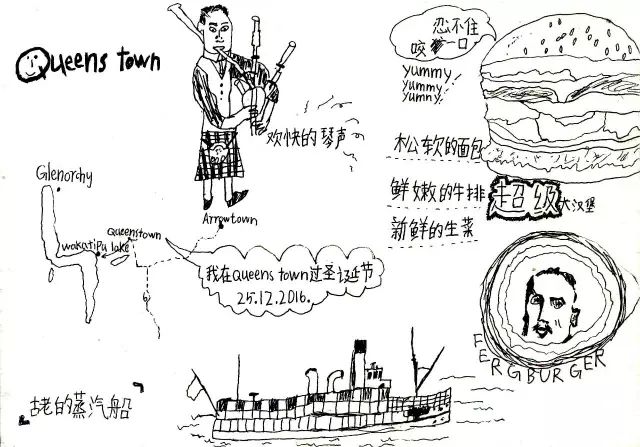 Queens town
忍不住
咬一口
yummy
yummy
yummy
欢快的琴声
松软的面包
鲜嫩的牛排
超级大汉堡
新鲜的生菜
Glenorchy
Arrowtown
Queenstown
wakatipu lake
我在Queens town过圣诞节
25.12.2016.
FERGBURGER
古老的蒸汽船